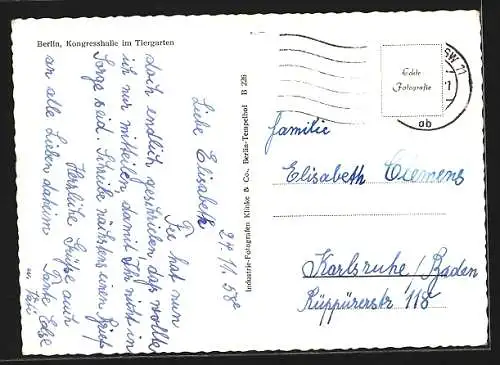 Berlin, Kongresshalle im Tiergarten
24.11.58
Liebe Elisabeth
Fe hat nun
doch endlich geschrieben, das wollte
ich nur mitteilen damit Ihr nicht in
Sorge seid. Schreibe nächstens einen Brief
Herzliche Grüße auch
an alle Lieben daheim
Industrie-Fotografen Klinke & Co., Berlin-Tempelhof B 226
Echte
Fotografie
SW 11
ab
Familie
Elisabeth Clemens
Karlsruhe/Baden
Rüppürrerstr 118